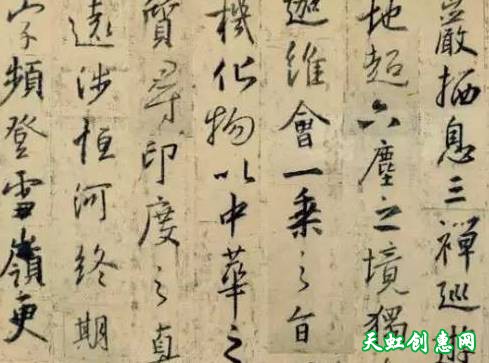 嚴栖息三禪巡遊
地超六塵之境獨
迦維會一乘之旨
機化物以中華之
質尋印度之真
遠涉恒河終期
字頻登雪嶺更
天虹创惠网